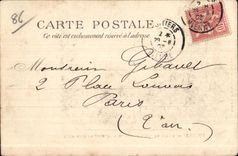 86
CARTE POSTALE
Ce côté est exclusivement réservé à l'adresse
Monsieur Gibault
2 Place Louvois
Paris